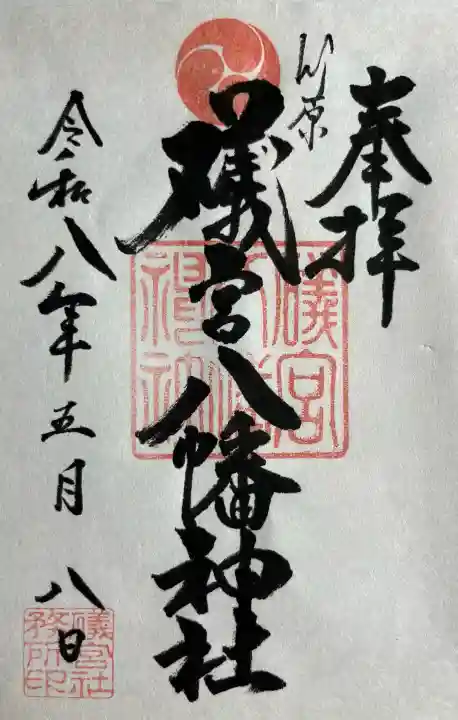 奉拝
竹原
礒宮八幡神社
礒宮
八幡
神社
令和八年五月八日
礒宮社
務所印